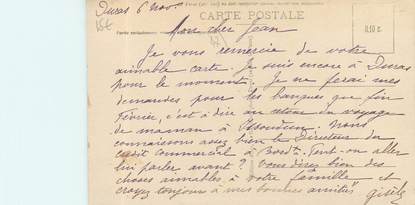 Duras 6 nov
CARTE POSTALE
Mon cher Jean
Je vous remercie de votre
aimable carte. Je suis encore à Duras
pour le moment. Je ne ferai mes
demandes pour les banques que fin
Février, c'est à dire au retour du voyage
de maman à Issoudun. Nous
connaissons assez bien le Directeur du
crédit commercial à Bordx. Peut-on aller
lui parler avant? Vous direz bien des
choses aimables à votre famille et
croyez toujours à mes bonnes amitiés Gisèle
0,10 c.